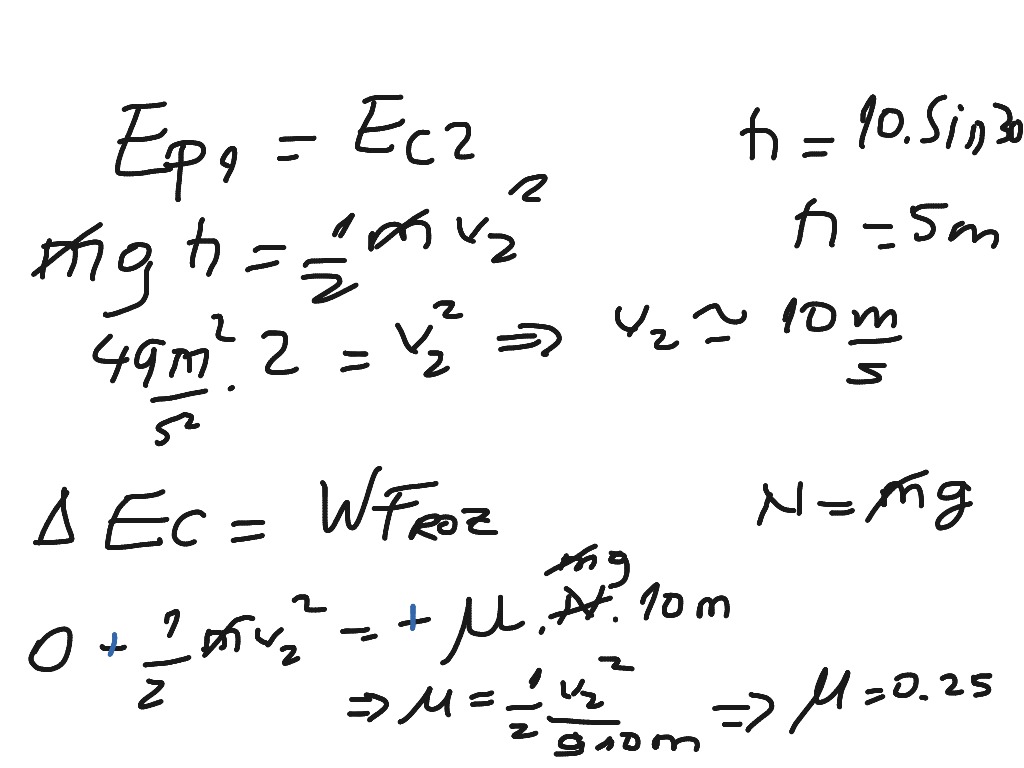 Ep1 = Ec2
h = 10. Sin 30
mgh = 1/2 m v₂²
h = 5m
49 m²/s² . 2 = v₂² ⇒ v₂ ≃ 10 m/s
Δ Ec = WFROZ
N = mg
mg
0 + 1/2 m v₂² = + μ . N . 10 m
⇒ μ = 1/2 v₂²/g 10 m ⇒ μ = 0.25